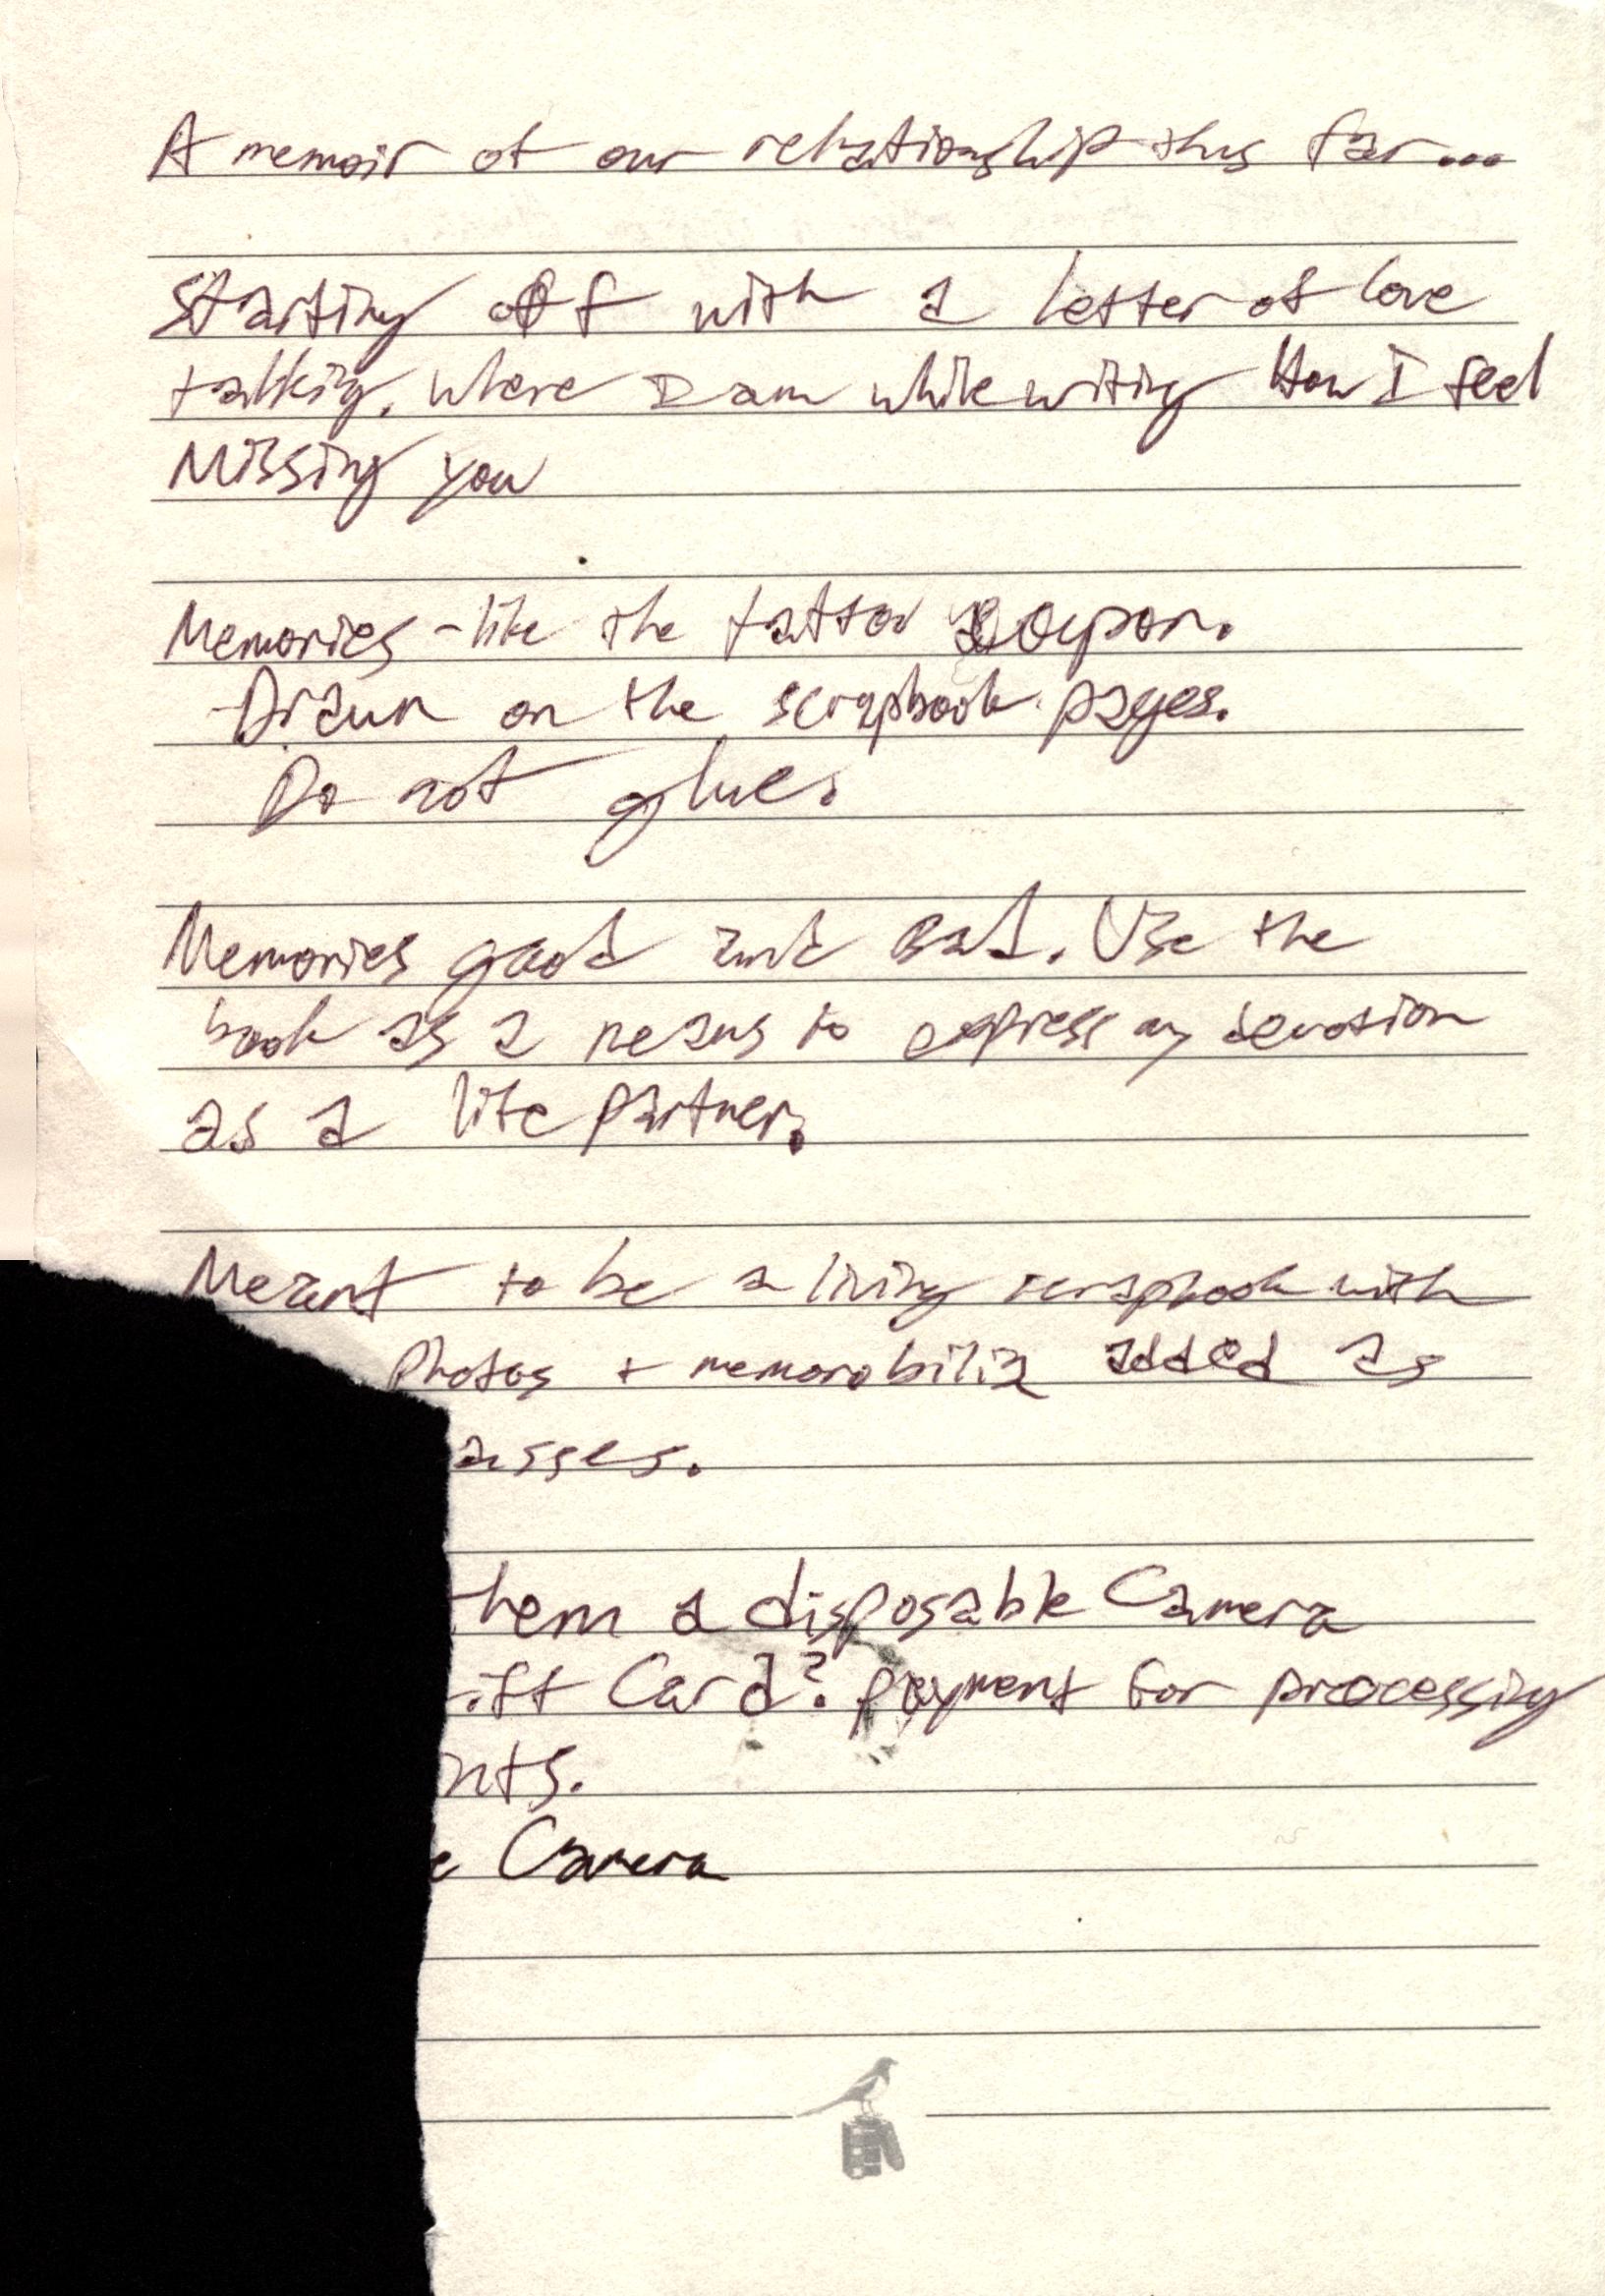 A memoir of our relationship thus far...
Starting off with a letter of love
talking. Where I am while writing How I feel
Missing you
Memories - like the tattoo
Drawn on the scrapbook pages.
Do not glue.
Memories good and Bad. Use the
book as a means to express my devotion
as a life partner.
Meant to be a living scrapbook with
Photos + memorabilia added as
asses.
them a disposable Camera
ift Card? Payment for processing
nts.
e Camera